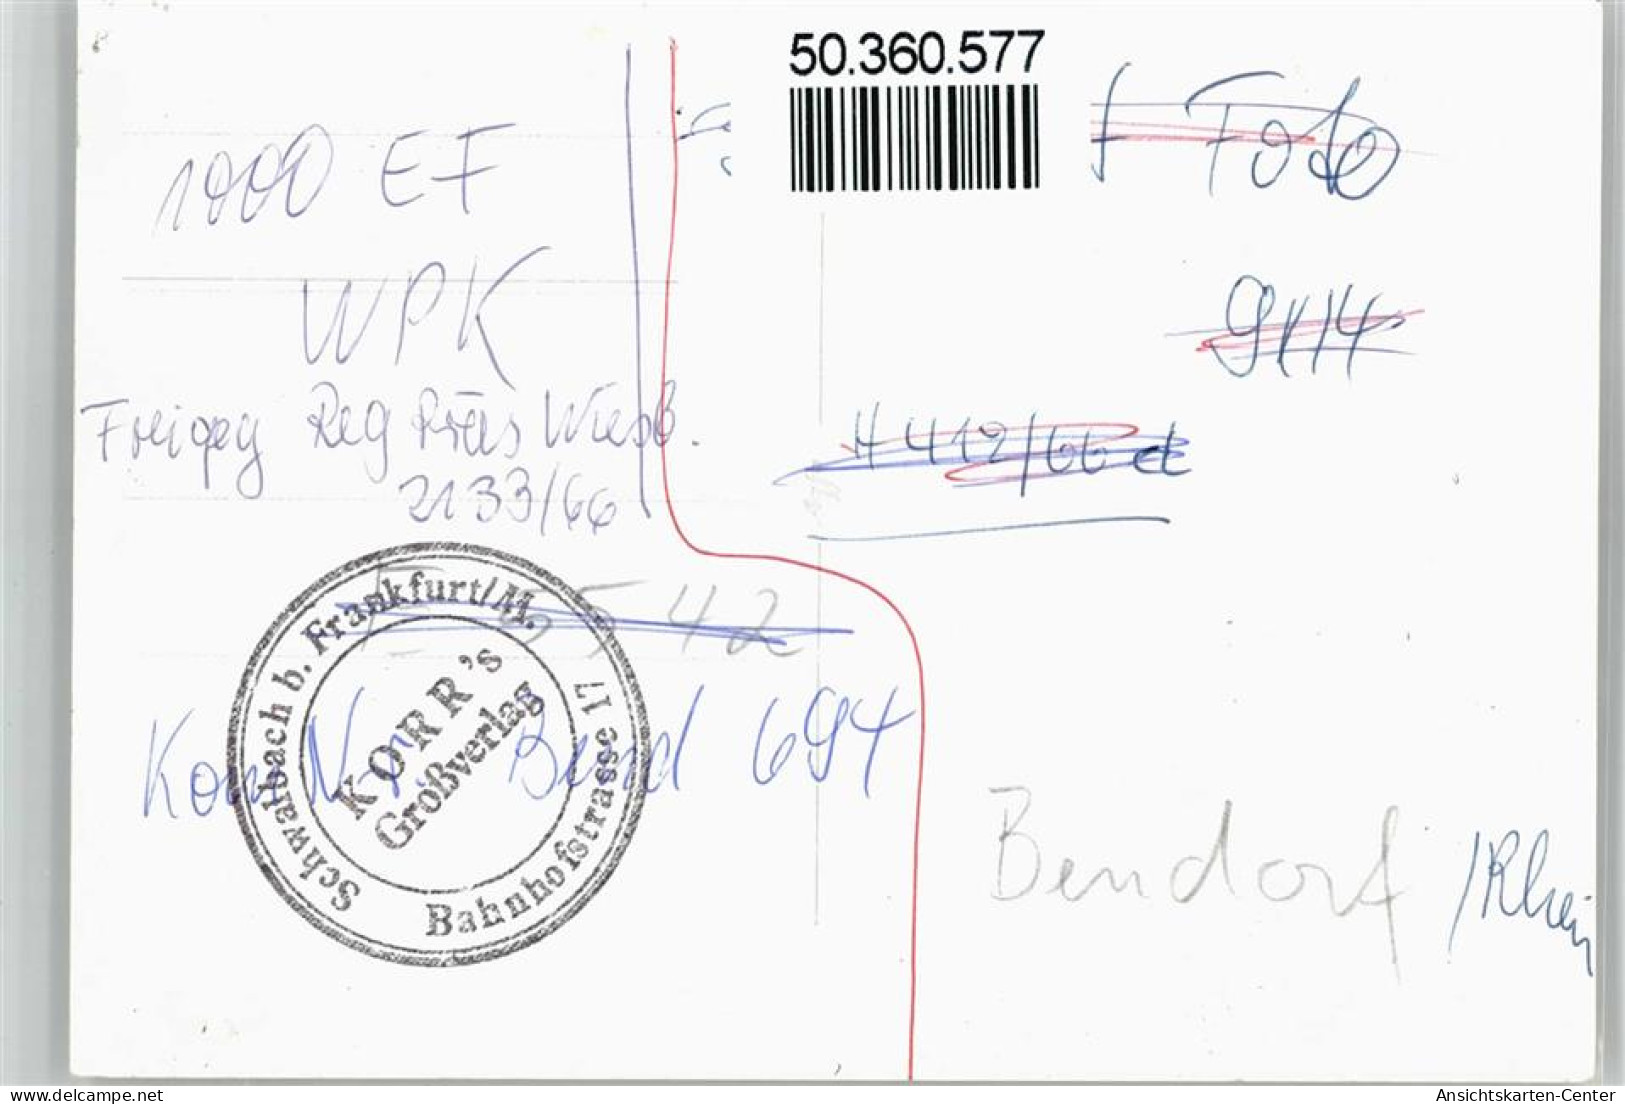 50.360.577
1000 EF
WPK
Freigeg Reg Präs Wiesb.
2133/66
Foto
9x14
H 412/66 d
542
Schwalbach b. Frankfurt/M.
Bahnhofstrasse 17
KORR's
Großverlag
Korr Nr Bend 694
Bendorf /Rhein
delcampe.net
Ansichtskarten-Center